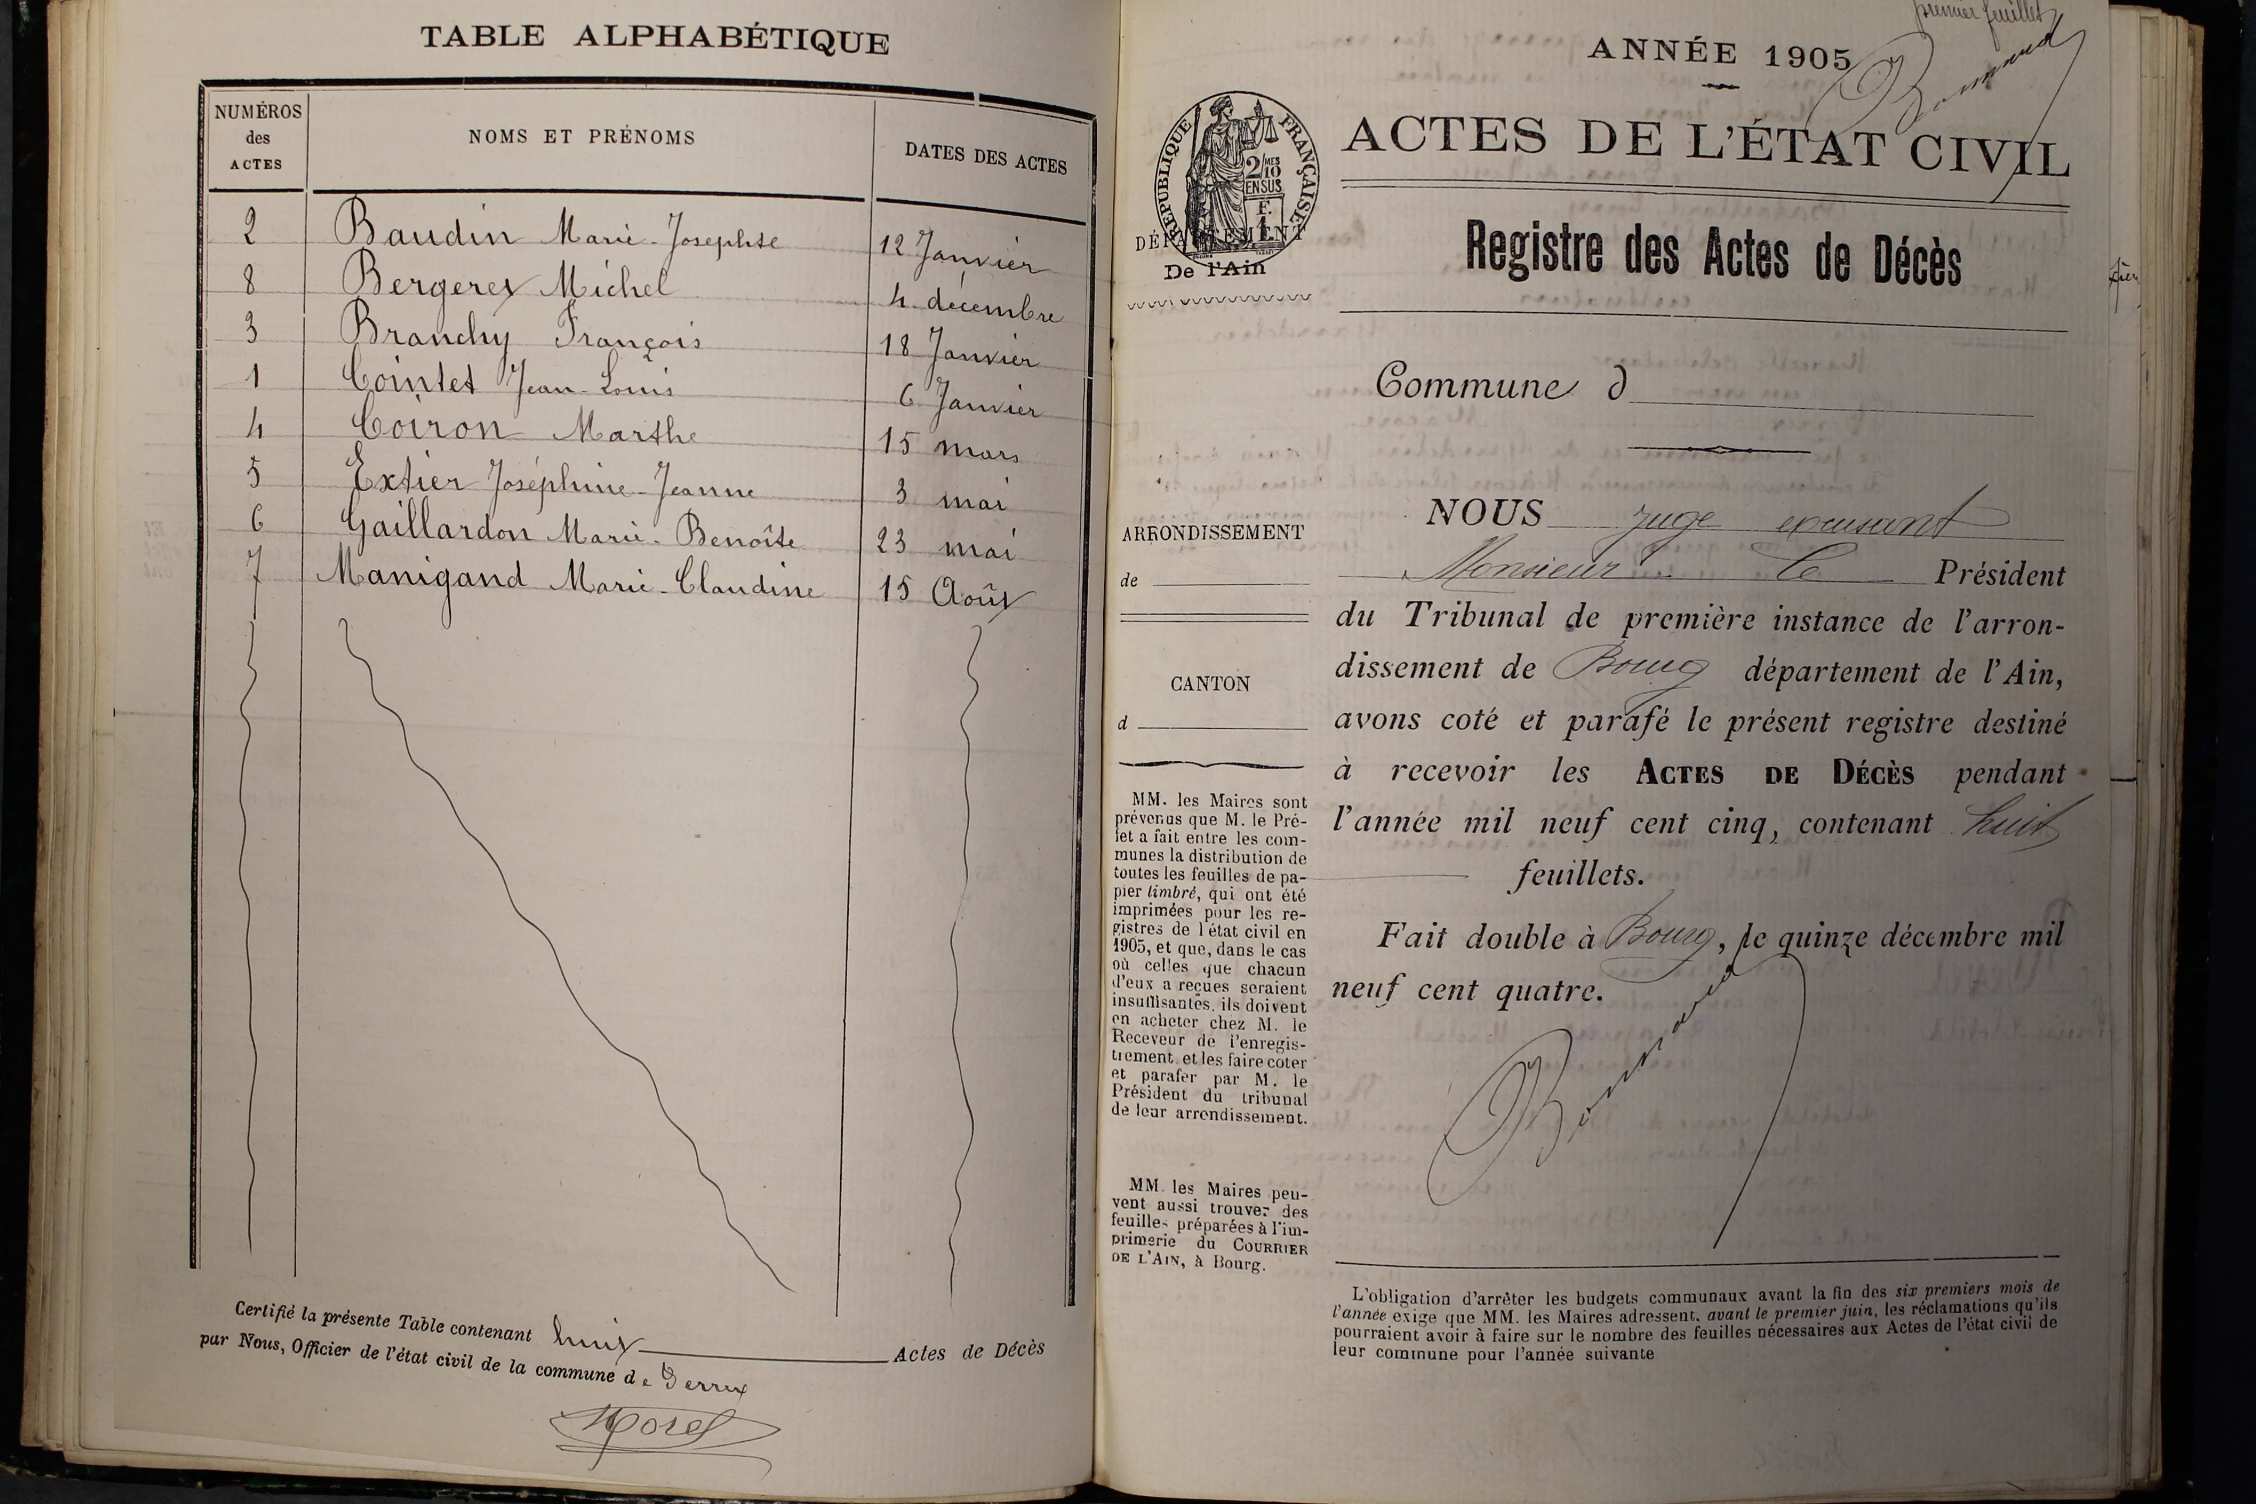 TABLE ALPHABÉTIQUE
NUMÉROS
des
ACTES
NOMS ET PRÉNOMS
DATES DES ACTES
2 Baudin Marie-Josephte 12 Janvier
8 Bergeret Michel 4 décembre
3 Branchy François 18 Janvier
1 Cointet Jean-Louis 6 Janvier
4 Coiron Marthe 15 mars
5 Extier Joséphine-Jeanne 3 mai
6 Gaillardon Marie-Benoîte 23 mai
7 Manigand Marie-Claudine 15 Août
Certifié la présente Table contenant huit Actes de Décès
par Nous, Officier de l'état civil de la commune de
Morel
premier feuillet
ANNÉE 1905
ACTES DE L'ÉTAT CIVIL
RÉPUBLIQUE FRANÇAISE
2/10
MES
EN SUS
F.
1
DÉPARTEMENT
De l'Ain
Registre des Actes de Décès
Commune d
ARRONDISSEMENT
de
CANTON
d
MM. les Maires sont
prévenus que M. le Pré-
fet a fait entre les com-
munes la distribution de
toutes les feuilles de pa-
pier timbré, qui ont été
imprimées pour les re-
gistres de l'état civil en
1905, et que, dans le cas
où celles que chacun
d'eux a reçues seraient
insuffisantes, ils doivent
en acheter chez M. le
Receveur de l'enregis-
trement et les faire coter
et parafer par M. le
Président du tribunal
de leur arrondissement.
MM. les Maires peu-
vent aussi trouver des
feuilles préparées à l'im-
primerie du COURRIER
DE L'AIN, à Bourg.
NOUS juge
Monsieur le Président
du Tribunal de première instance de l'arron-
dissement de Bourg département de l'Ain,
avons coté et parafé le présent registre destiné
à recevoir les ACTES DE DÉCÈS pendant
l'année mil neuf cent cinq, contenant huit
feuillets.
Fait double à Bourg, le quinze décembre mil
neuf cent quatre.
L'obligation d'arrêter les budgets communaux avant la fin des six premiers mois de
l'année exige que MM. les Maires adressent, avant le premier juin, les réclamations qu'ils
pourraient avoir à faire sur le nombre des feuilles nécessaires aux Actes de l'état civil de
leur commune pour l'année suivante